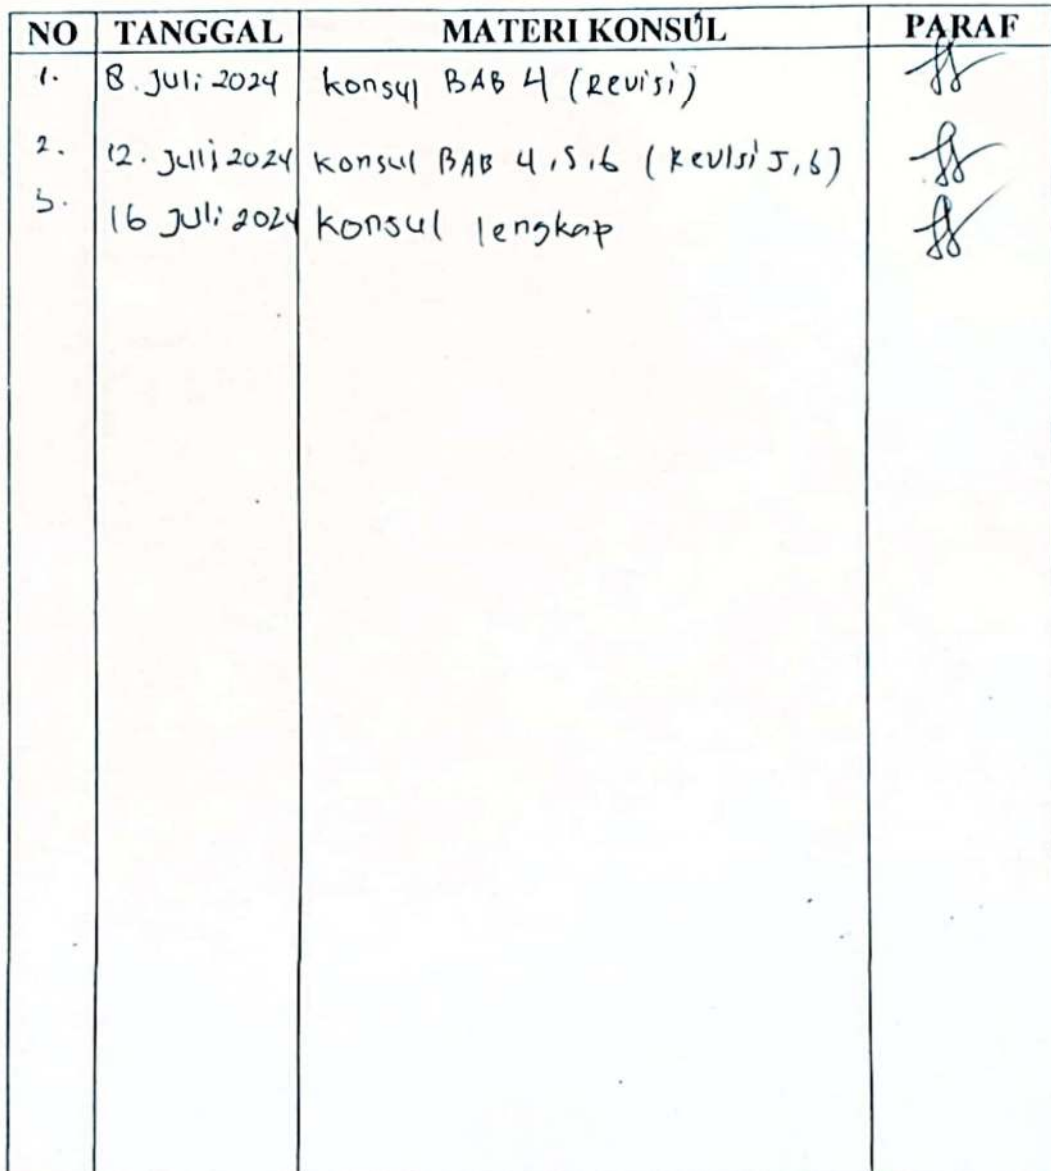 NO TANGGAL MATERI KONSUL PARAF
1. 8. Juli 2024 konsul BAB 4 (Revisi)
2. 12. Juli 2024 konsul BAB 4,5,6 (Revisi 5,6)
3. 16 Juli 2024 konsul lengkap